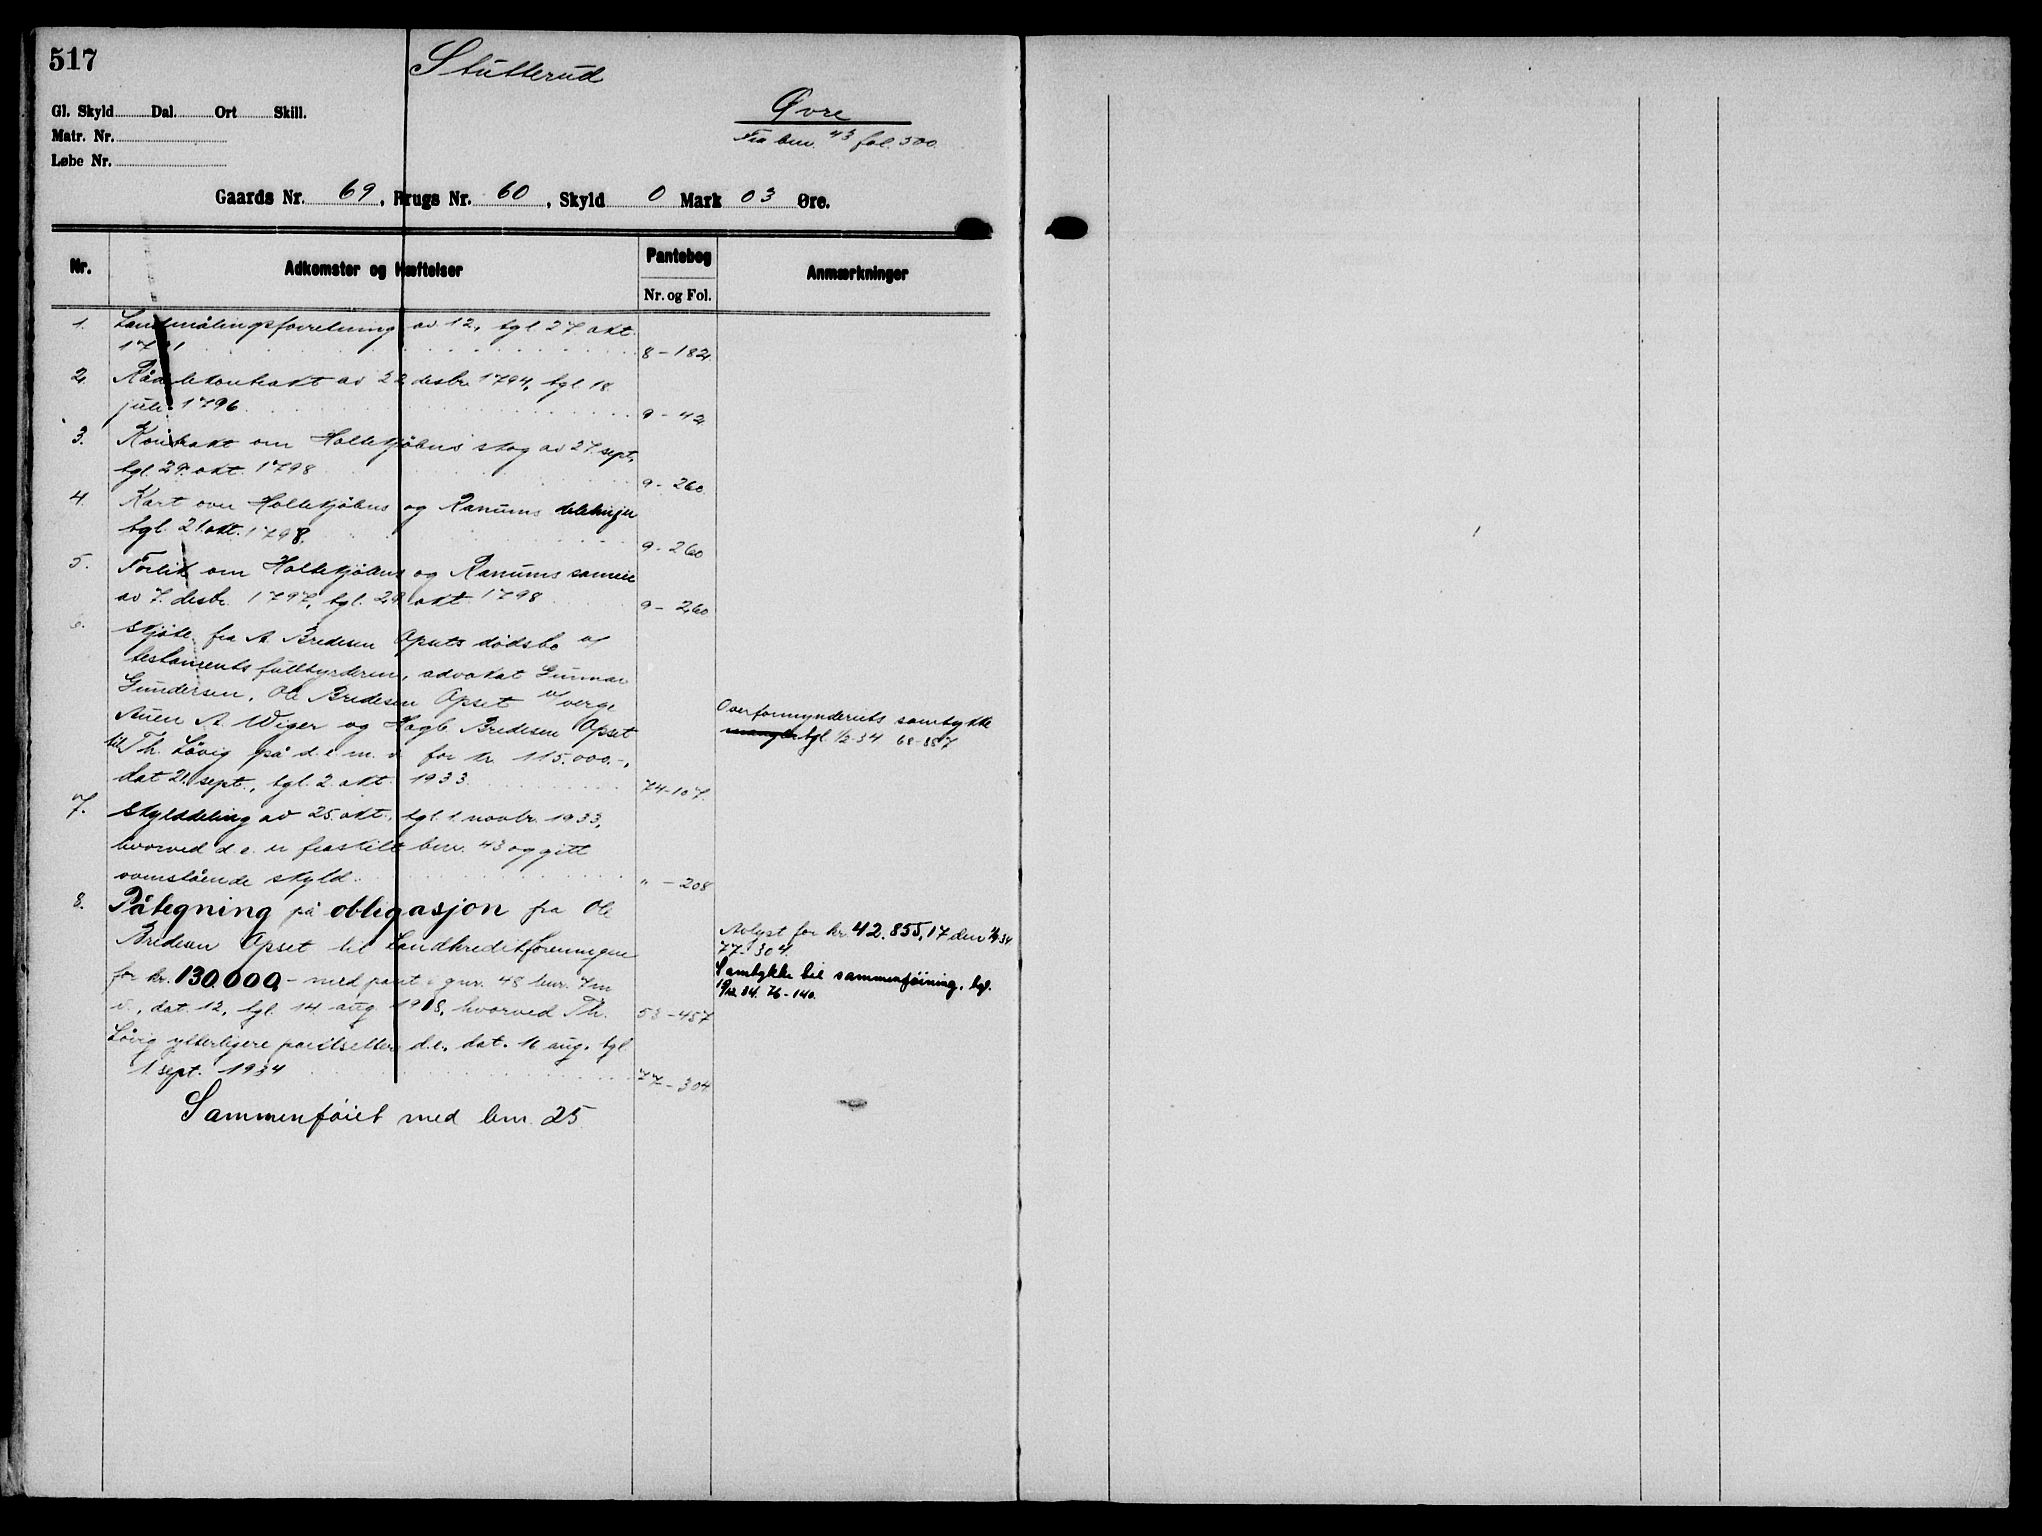 517
Stutterud
Gl. Skyld Dal. Ort Skill.
Matr. Nr.
Løbe Nr.
Øvre
Fra bnr. 43 fol. 500.
Gaards Nr. 69, Brugs Nr. 60, Skyld 0 Mark 03 Øre.
Nr. Adkomster og Hæftelser Pantebog Nr. og Fol. Anmærkninger
1. Landmålingsforretning av 12, tgl. 27. okt.
8-182
2. kontrakt av 22 desbr. 1794, tgl. 18.
juli 1796 9-42
3. Kontrakt om Holtekjølens skog av 27. sept.
tgl. 29. okt. 1798 9-260
4. Kart over Holtekjølens og Ranums
tgl. 21. okt. 1798. 9-260
5. Forlik om Holtekjølens og Ranums sameie
av 7. desbr. 1797, tgl. 29. okt. 1798 9-260
6. Skjøte fra A. Bredesen Opsets dødsbo v/
testamentsfullbyrderen, advokat Gunnar
Gundersen, Ole Bredesen Opset v/ verge
A. Wiger og Hagb. Bredesen Opset
til Th. Løvig på d. e. m. v. for kr. 115.000.-,
dat. 21. sept., tgl. 2. okt. 1933. 74-107.
Overformynderiets samtykke
mangler tgl. 1/2-34 68-887
7. Skylddeling av 25. okt., tgl. 1. novbr. 1933,
hvorved d. e. er fraskilt bnr. 43 og gitt
ovenstående skyld. " - 208
8. Påtegning på obligasjon fra Ole
Bredesen Opset til Landkreditforeningen
for kr. 130.000,- med pant i gnr. 48 bnr. 7 m.
v., dat. 12, tgl. 14. aug. 1918, hvorved Th. 53-457
Løvig ytterligere pantsetter d. e., dat. 16 aug., tgl.
1 sept. 1934 77-304
Avlyst for kr. 42.855,17 den
77-304.
Samtykke til sammenføining, tgl.
19/12 34. 76-140.
Sammenføiet med bnr. 25